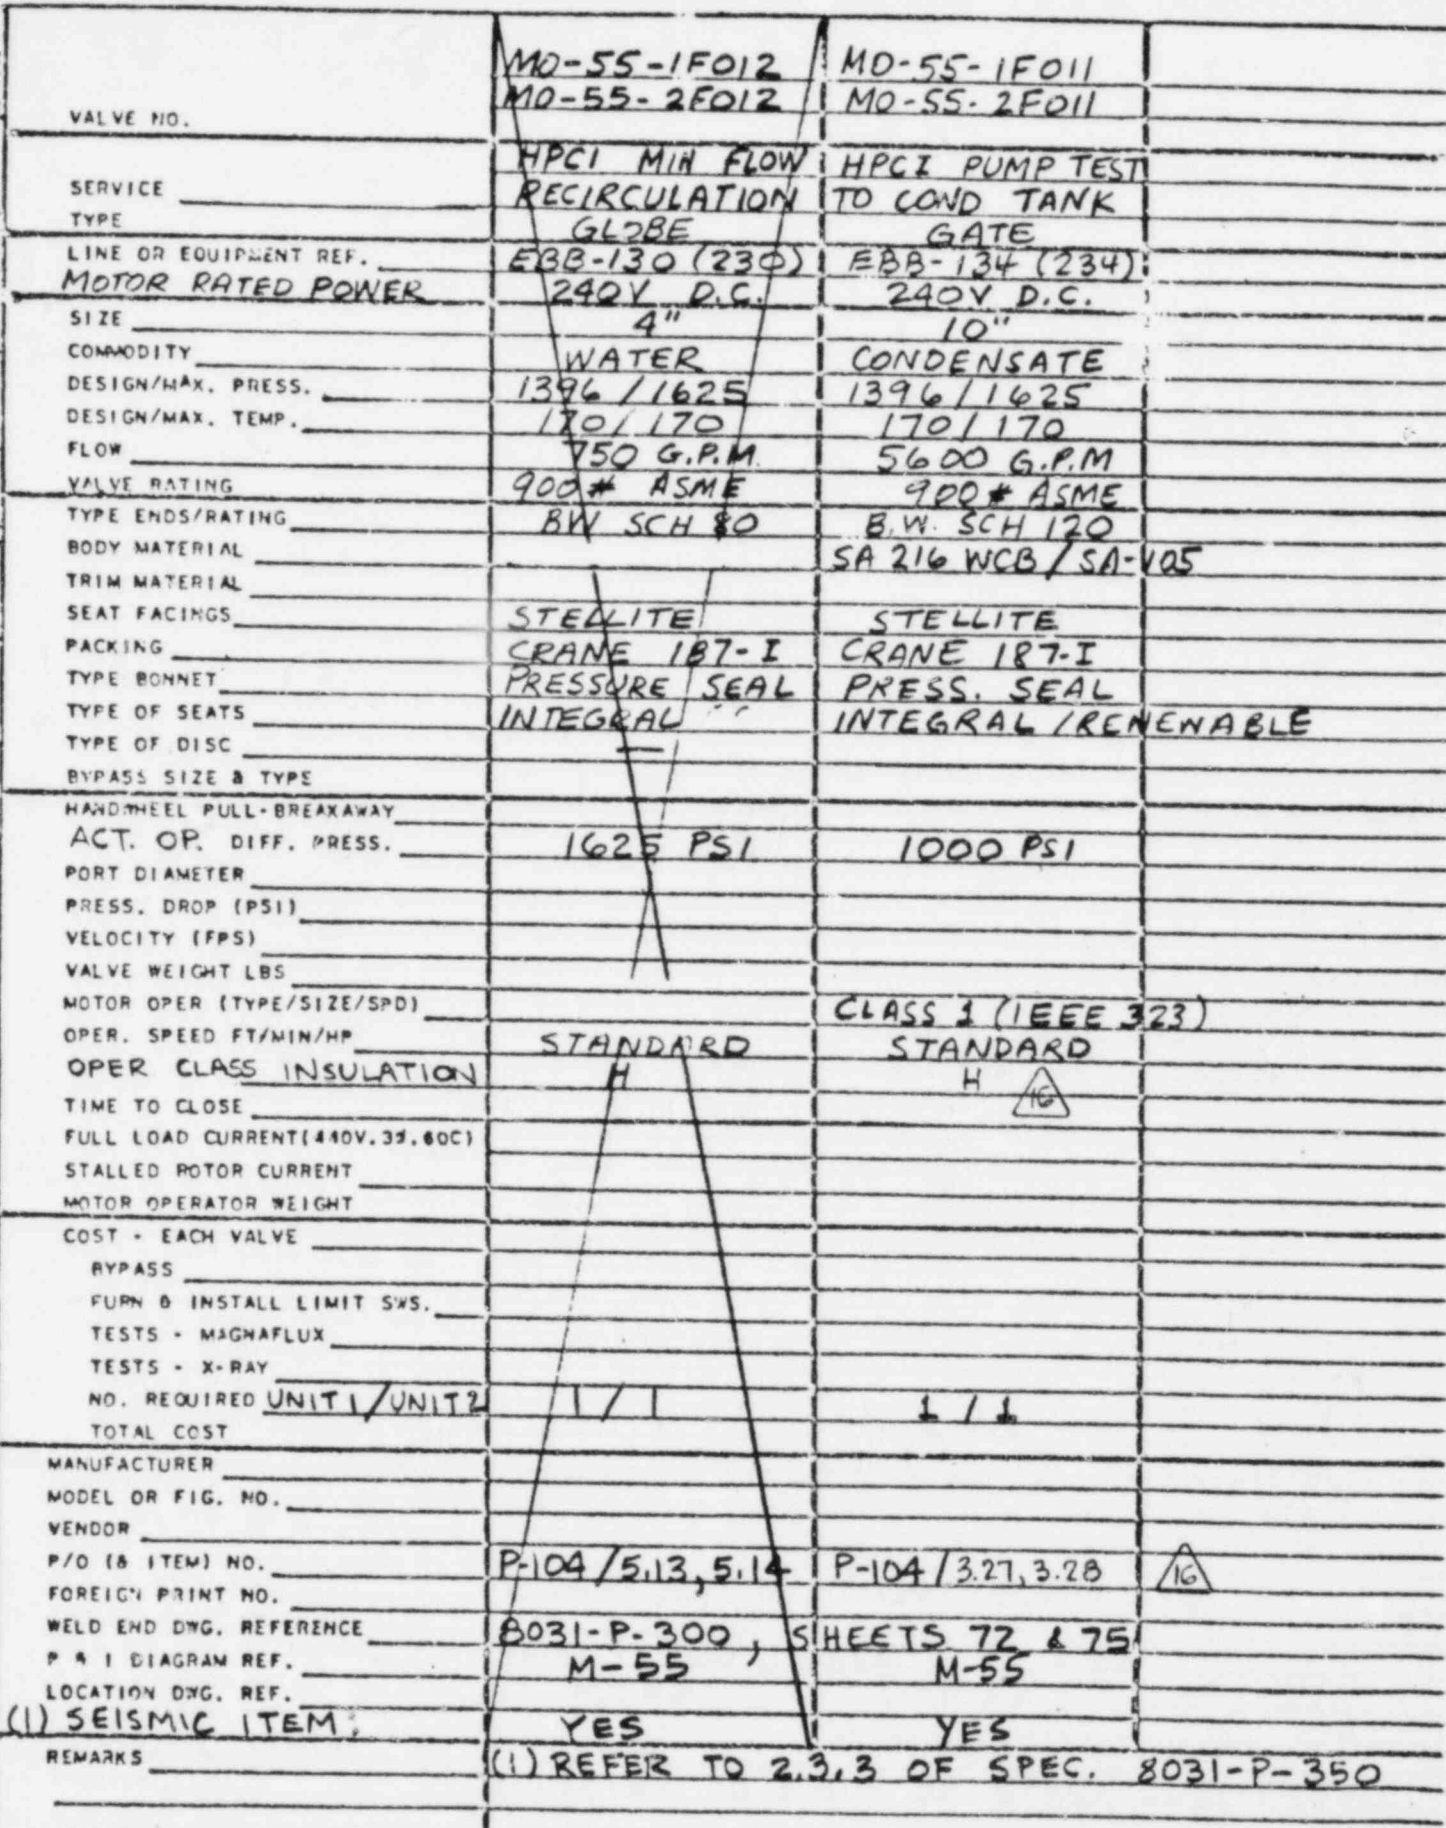 MO-55-1F012 MO-55-1F011
MO-55-2F012 MO-55-2F011
VALVE NO.
HPCI MIN FLOW HPCI PUMP TEST
SERVICE RECIRCULATION TO COND TANK
TYPE GLOBE GATE
LINE OR EQUIPMENT REF. EBB-130 (230) EBB-134 (234)
MOTOR RATED POWER 240V D.C. 240V D.C.
SIZE 4" 10"
COMMODITY WATER CONDENSATE
DESIGN/MAX. PRESS. 1396/1625 1396/1625
DESIGN/MAX. TEMP. 170/170 170/170
FLOW 750 G.P.M. 5600 G.P.M
VALVE RATING 900# ASME 900# ASME
TYPE ENDS/RATING BW SCH 80 B.W. SCH 120
BODY MATERIAL SA 216 WCB / SA-105
TRIM MATERIAL
SEAT FACINGS STELLITE STELLITE
PACKING CRANE 187-I CRANE 187-I
TYPE BONNET PRESSURE SEAL PRESS. SEAL
TYPE OF SEATS INTEGRAL INTEGRAL/RENEWABLE
TYPE OF DISC —
BYPASS SIZE & TYPE
HANDWHEEL PULL-BREAKAWAY
ACT. OP. DIFF. PRESS. 1625 PSI 1000 PSI
PORT DIAMETER
PRESS. DROP (PSI)
VELOCITY (FPS)
VALVE WEIGHT LBS
MOTOR OPER (TYPE/SIZE/SPD) CLASS 1 (IEEE 323)
OPER. SPEED FT/MIN/HP STANDARD STANDARD
OPER CLASS INSULATION H H 16
TIME TO CLOSE
FULL LOAD CURRENT(440V.3Ø.60C)
STALLED ROTOR CURRENT
MOTOR OPERATOR WEIGHT
COST - EACH VALVE
BYPASS
FURN & INSTALL LIMIT SWS.
TESTS - MAGNAFLUX
TESTS - X-RAY
NO. REQUIRED UNIT 1/UNIT 2 1/1 1/1
TOTAL COST
MANUFACTURER
MODEL OR FIG. NO.
VENDOR
P/O (& ITEM) NO. P-104/5.13, 5.14 P-104/3.27, 3.28 16
FOREIGN PRINT NO.
WELD END DWG. REFERENCE 8031-P-300, SHEETS 72 & 75
P & I DIAGRAM REF. M-55 M-55
LOCATION DWG. REF.
(1) SEISMIC ITEM: YES YES
REMARKS (1) REFER TO 2.3.3 OF SPEC. 8031-P-350